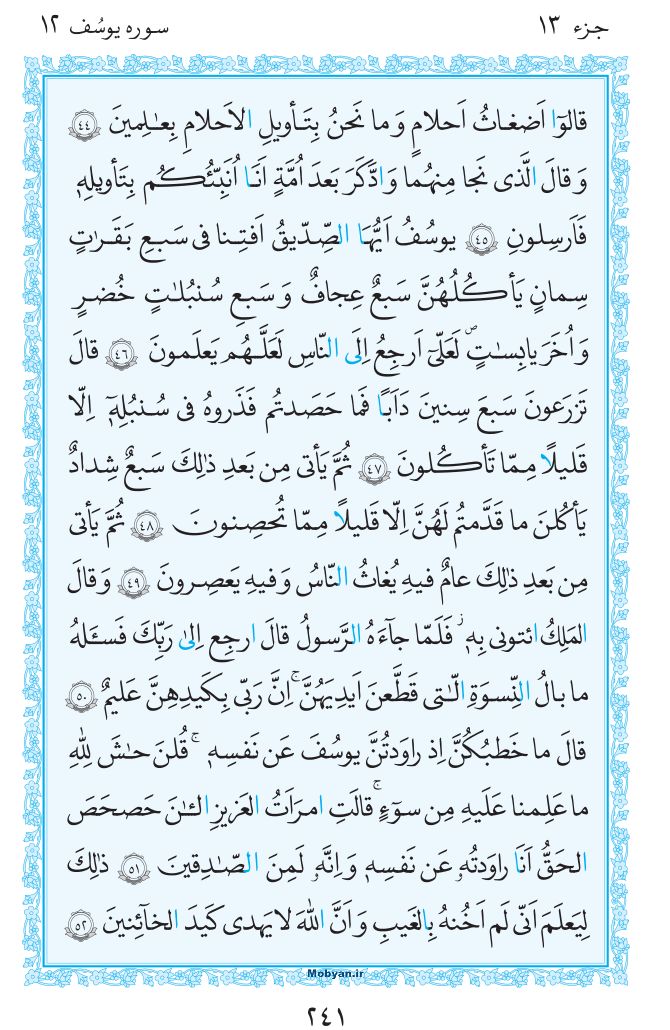 جزء ۱۳
سوره یوسُف ۱۲
قالوٓا اَضغاثُ اَحلامٍ وَ ما نَحنُ بِتَأويلِ الاَحلامِ بِعٰلِمينَ ﴿٤٤﴾
وَ قالَ الَّذى نَجا مِنهُما وَ ادَّكَرَ بَعدَ اُمَّةٍ اَنَا اُنَبِّئُكُم بِتَأويلِهٖ
فَاَرسِلونِ ﴿٤٥﴾ يوسُفُ اَيُّهَا الصِّدّيقُ اَفتِنا فى سَبعِ بَقَرٰتٍ
سِمانٍ يَأكُلُهُنَّ سَبعٌ عِجافٌ وَ سَبعِ سُنبُلٰتٍ خُضرٍ
وَ اُخَرَ يابِسٰتٍ ۙ لَعَلّىٓ اَرجِعُ اِلَى النّاسِ لَعَلَّهُم يَعلَمونَ ﴿٤٦﴾ قالَ
تَزرَعونَ سَبعَ سِنينَ دَاَبًا فَما حَصَدتُم فَذَروهُ فى سُنبُلِهٖٓ اِلّا
قَليلًا مِمّا تَأكُلونَ ﴿٤٧﴾ ثُمَّ يَأتى مِن بَعدِ ذٰلِكَ سَبعٌ شِدادٌ
يَأكُلنَ ما قَدَّمتُم لَهُنَّ اِلّا قَليلًا مِمّا تُحصِنونَ ﴿٤٨﴾ ثُمَّ يَأتى
مِن بَعدِ ذٰلِكَ عامٌ فيهِ يُغاثُ النّاسُ وَ فيهِ يَعصِرونَ ﴿٤٩﴾ وَ قالَ
المَلِكُ ائتونى بِهٖ ۖ فَلَمّا جآءَهُ الرَّسولُ قالَ ارجِع اِلىٰ رَبِّكَ فَسـَٔلهُ
ما بالُ النِّسوَةِ الّٰتى قَطَّعنَ اَيدِيَهُنَّ ۚ اِنَّ رَبّى بِكَيدِهِنَّ عَليمٌ ﴿٥٠﴾
قالَ ما خَطبُكُنَّ اِذ راوَدتُنَّ يوسُفَ عَن نَفسِهٖ ۚ قُلنَ حٰشَ لِلّٰهِ
ما عَلِمنا عَلَيهِ مِن سوٓءٍ ۚ قالَتِ امرَاَتُ العَزيزِ الـٰٔنَ حَصحَصَ
الحَقُّ اَنَا راوَدتُهٗ عَن نَفسِهٖ وَ اِنَّهٗ لَمِنَ الصّٰدِقينَ ﴿٥١﴾ ذٰلِكَ
لِيَعلَمَ اَنّى لَم اَخُنهُ بِالغَيبِ وَ اَنَّ اللّٰهَ لا يَهدى كَيدَ الخآئِنينَ ﴿٥٢﴾
Mobyan.ir
٢٤١